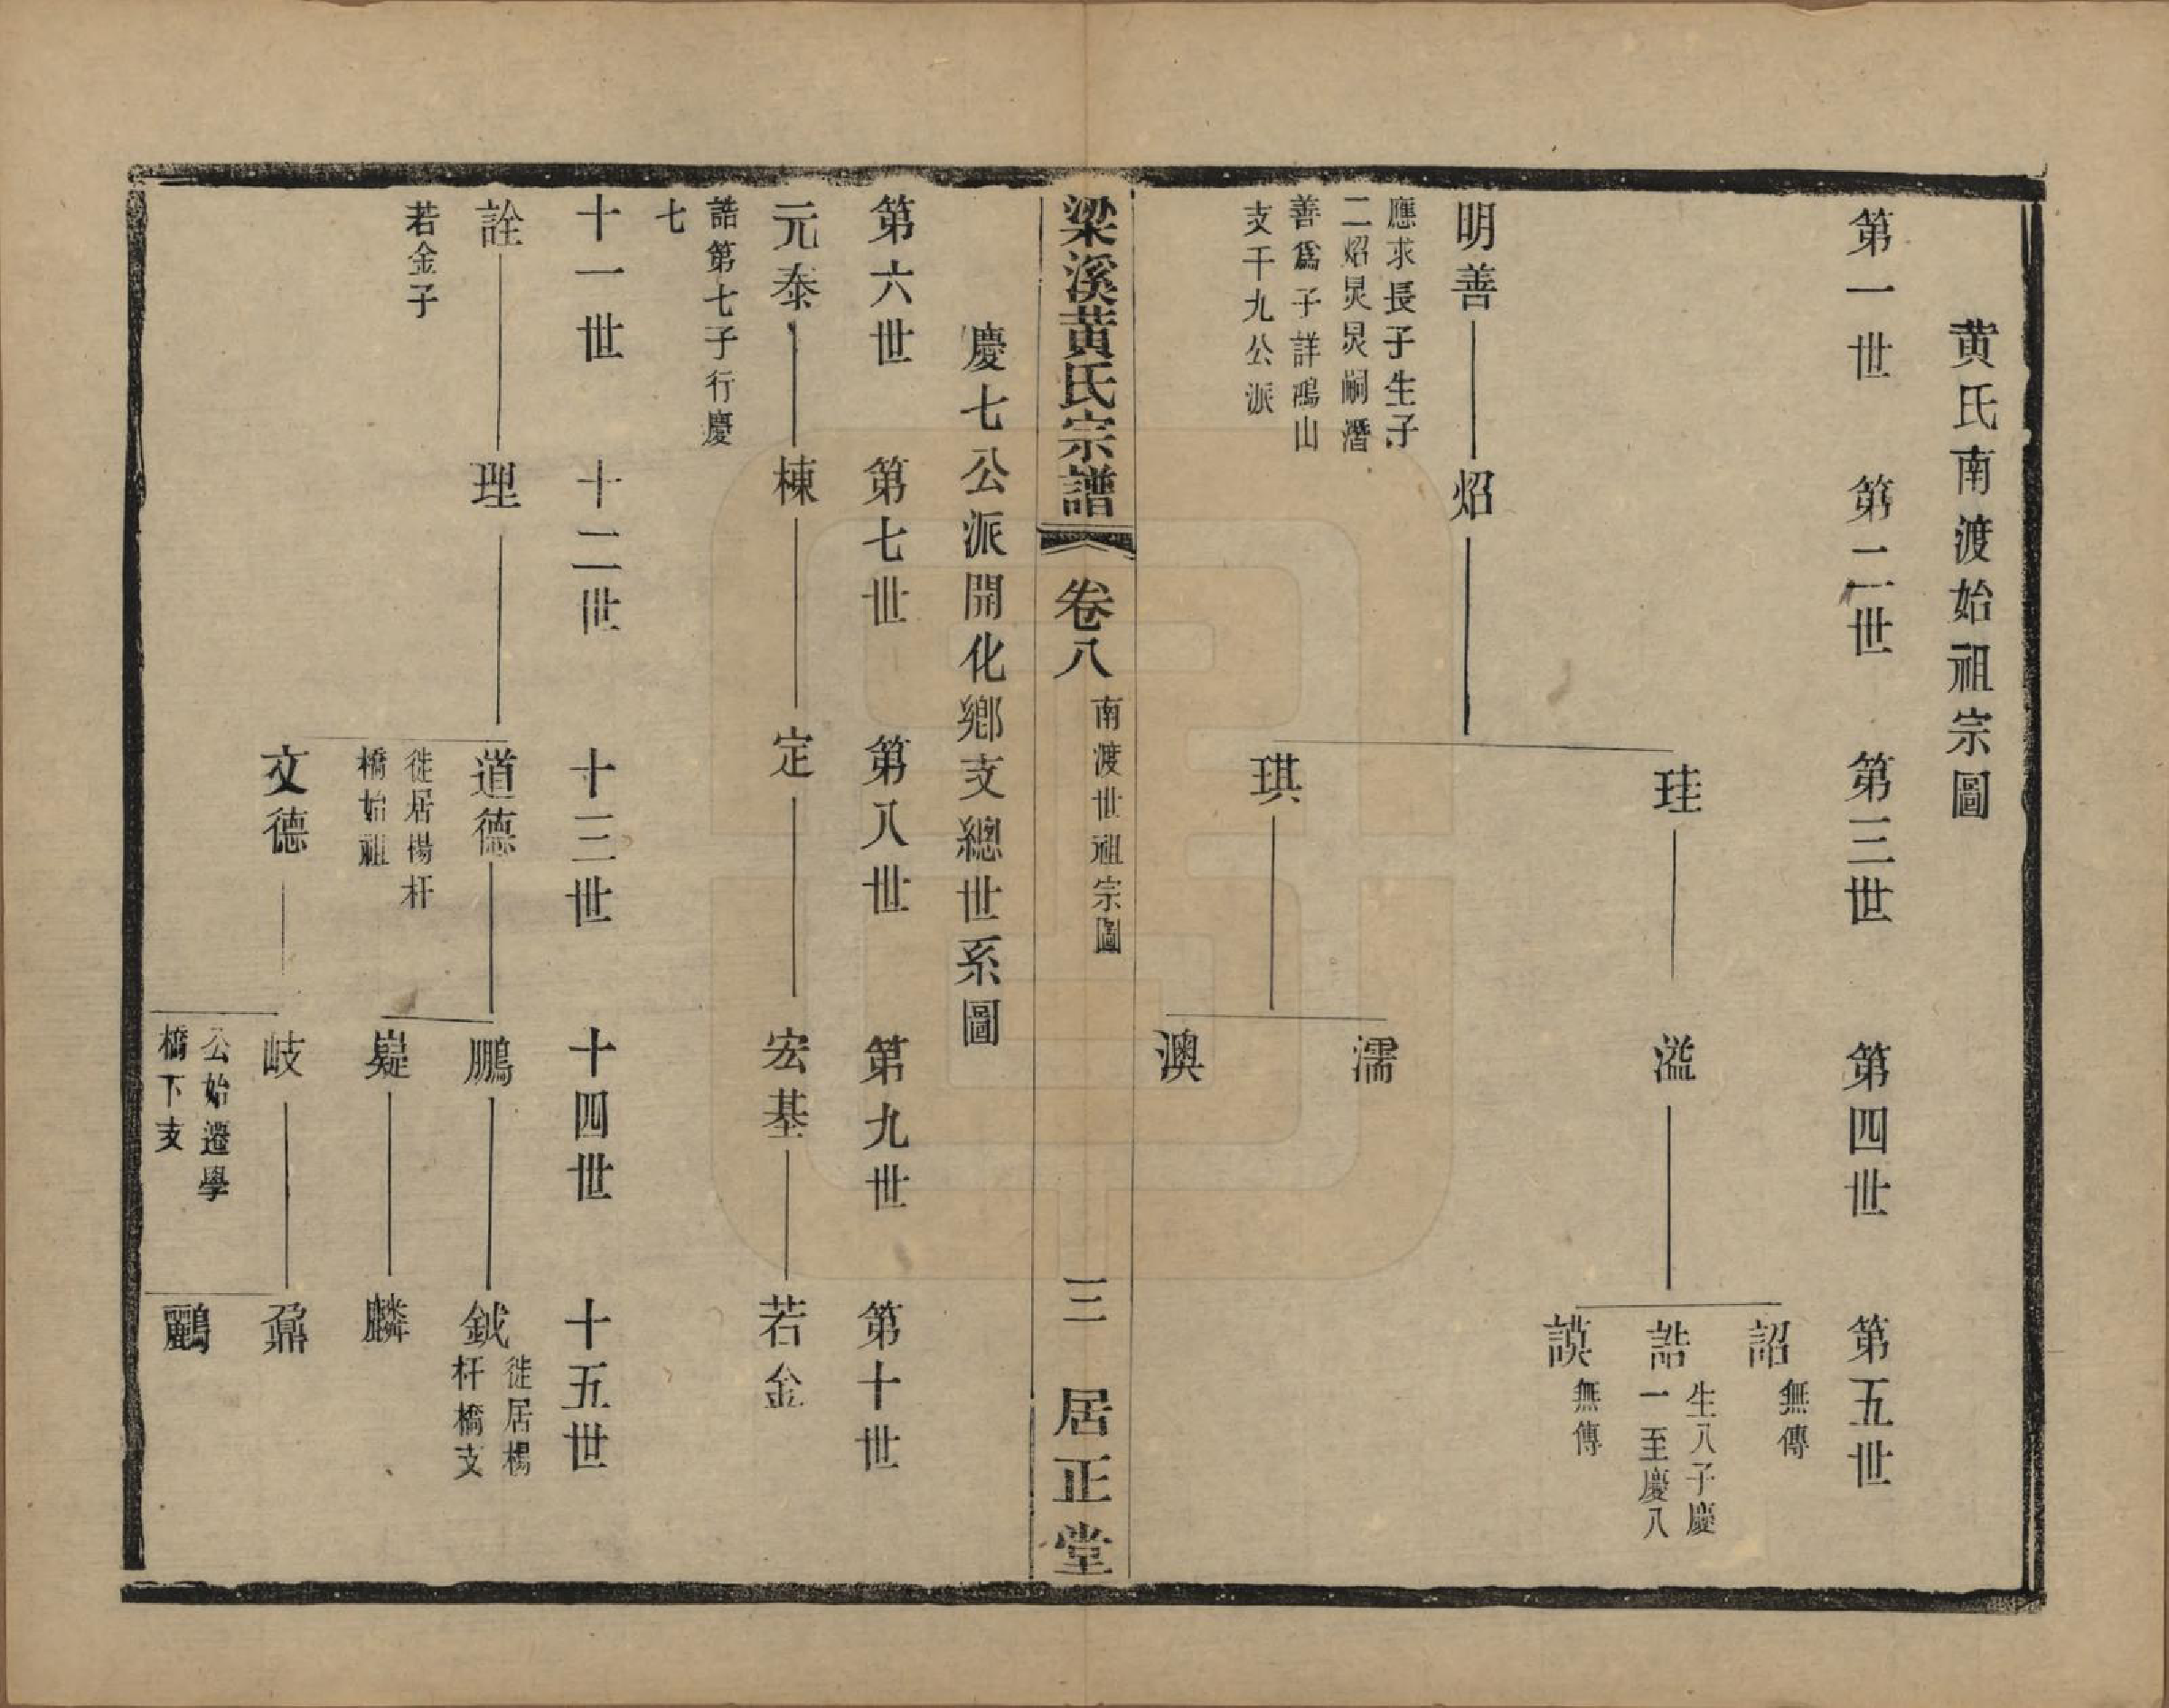 黃氏南渡始祖宗圖
第一世　第二世　第三世　第四世　第五世
詔 無傳
珪　溢　誥 生八子慶
一至慶八
謨 無傳
明善　炤
應求長子生子
二炤炅炅嗣潛
善爲子詳鴻山
支千九公派
濡
琪
澳
梁溪黃氏宗譜　卷八　南渡世祖宗圖　三　居正堂
慶七公派開化鄉支總世系圖
第六世　第七世　第八世　第九世　第十世
元泰　棟　定　宏基　若金
誥第七子行慶
七
十一世　十二世　十三世　十四世　十五世
詮　理　道德　鵬　鉞 徙居楊
杆橋支
若金子
徙居楊杆
橋始祖
嶷　麟
文德　岐　鼐
公始遷學
橋下支
鸝